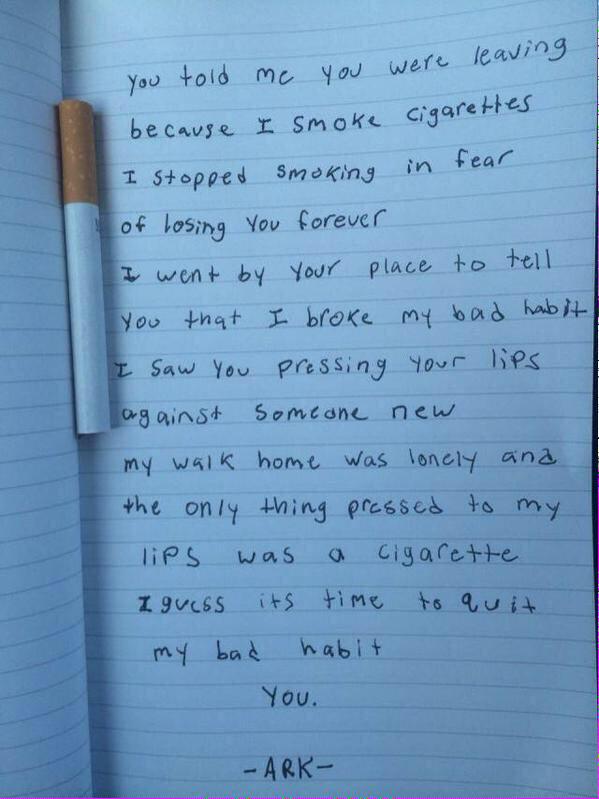 You told me you were leaving
because I smoke cigarettes
I stopped smoking in fear
of losing you forever
I went by your place to tell
you that I broke my bad habit
I saw you pressing your lips
against someone new
my walk home was lonely and
the only thing pressed to my
lips was a cigarette
I guess its time to quit
my bad habit
You.
-ARK-